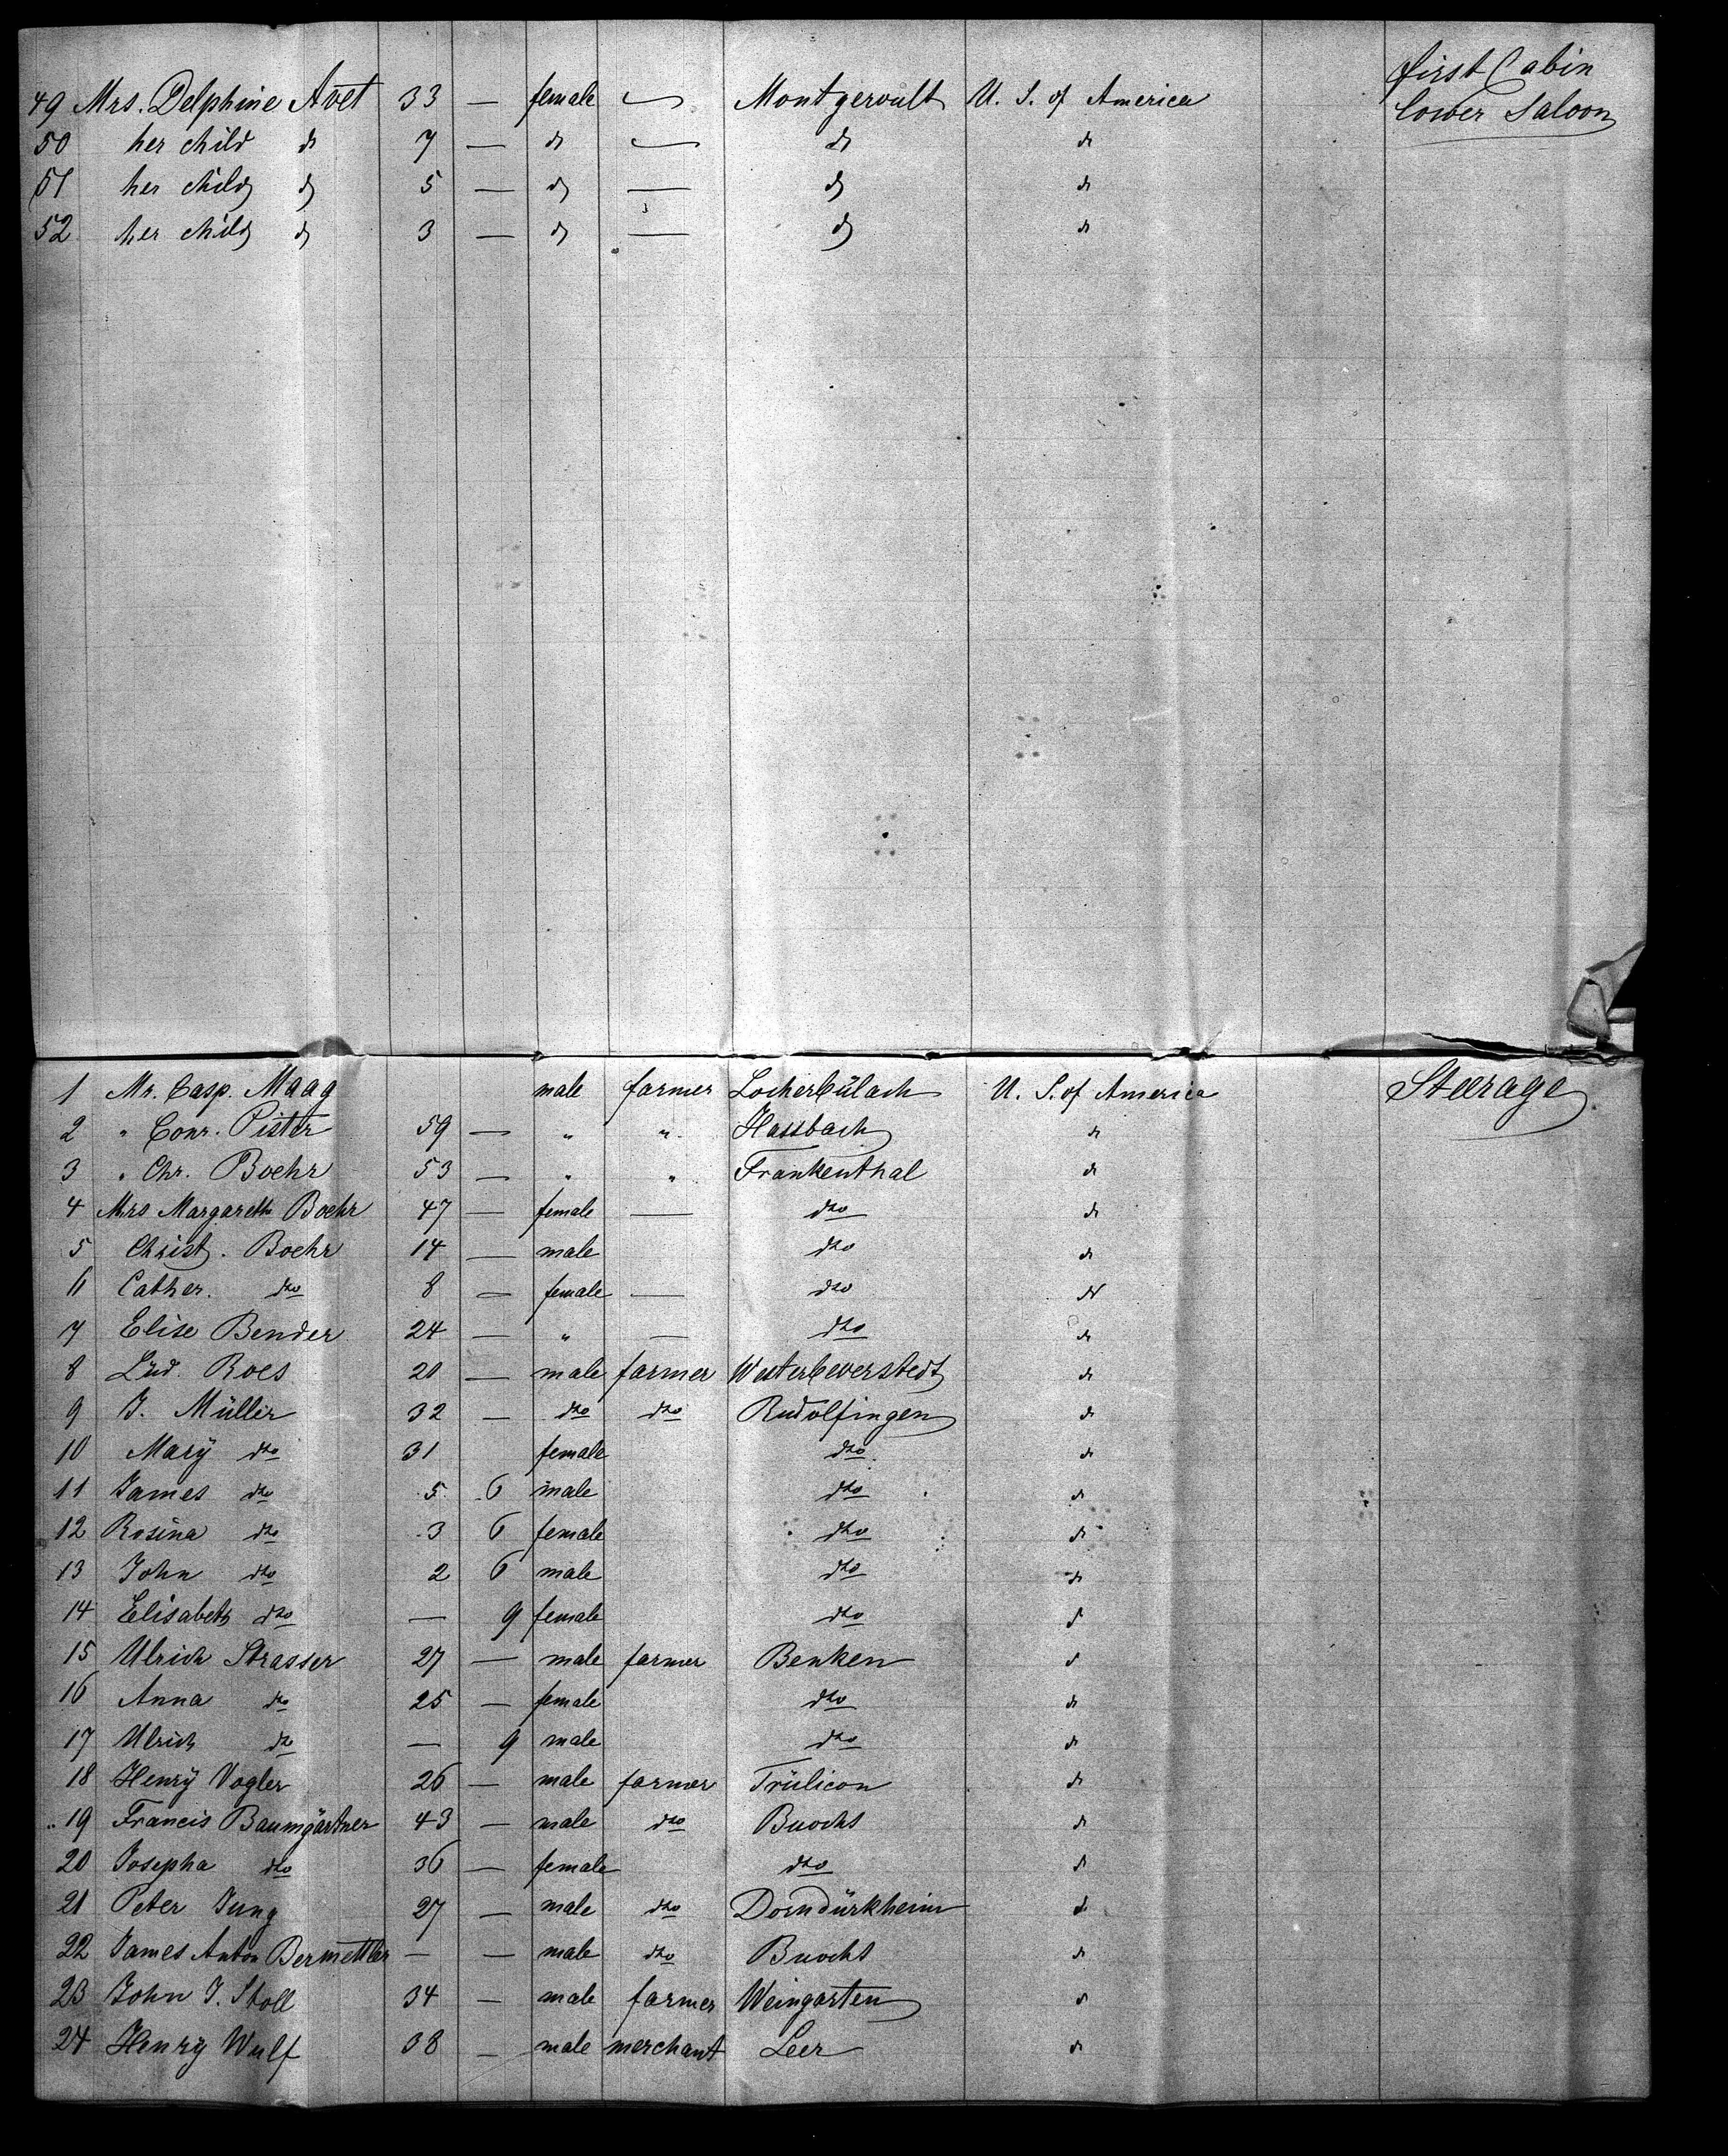 first Cabin
49 Mrs. Delphine Avet 33 — female — Montgervult U. S. of America lower Saloon
50 her child do 7 — do — do do
51 her child do 5 — do — do do
52 her child do 3 — do — do do
1 Mr. Casp. Maag male farmer Locherbülach U. S. of America Steerage
2 " Conr. Pister 59 — " " Hassbach do
3 " Chr. Boehr 53 — " " Frankenthal do
4 Mrs Margareth Boehr 47 — female — dto do
5 Christ. Boehr 14 — male dto do
6 Cather. dto 8 — female — dto do
7 Elise Bender 24 — " — dto do
8 Lud. Roes 20 — male farmer Westerbeverstedt do
9 J. Müller 32 — dto dto Rudolfingen do
10 Marÿ dto 31 female dto do
11 James dto 5 6 male dto do
12 Rosina dto 3 6 female dto do
13 John dto 2 6 male dto do
14 Elisabeth dto — 9 female dto do
15 Ulrich Strasser 27 — male farmer Benken do
16 Anna dto 25 — female dto do
17 Ulrich dto — 9 male dto do
18 Henrÿ Vogler 26 — male farmer Trülicon do
19 Francis Baumgärtner 43 — male dto Buochs do
20 Josepha dto 36 — female dto do
21 Peter Jung 27 — male dto Dorndürkheim do
22 James Anton Bermettler — — male dto Buochs do
23 John J. Stoll 34 — male farmer Weingarten do
24 Henrÿ Wulf 38 — male merchant Leer do